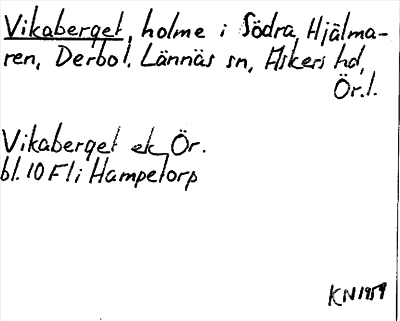 Vikaberget, holme i Södra Hjälma-
ren, Derbol. Lännäs sn, Askers hd,
Ör.l.
Vikaberget ek Ör.
bl. 10 Fl i Hampetorp
KN 1959